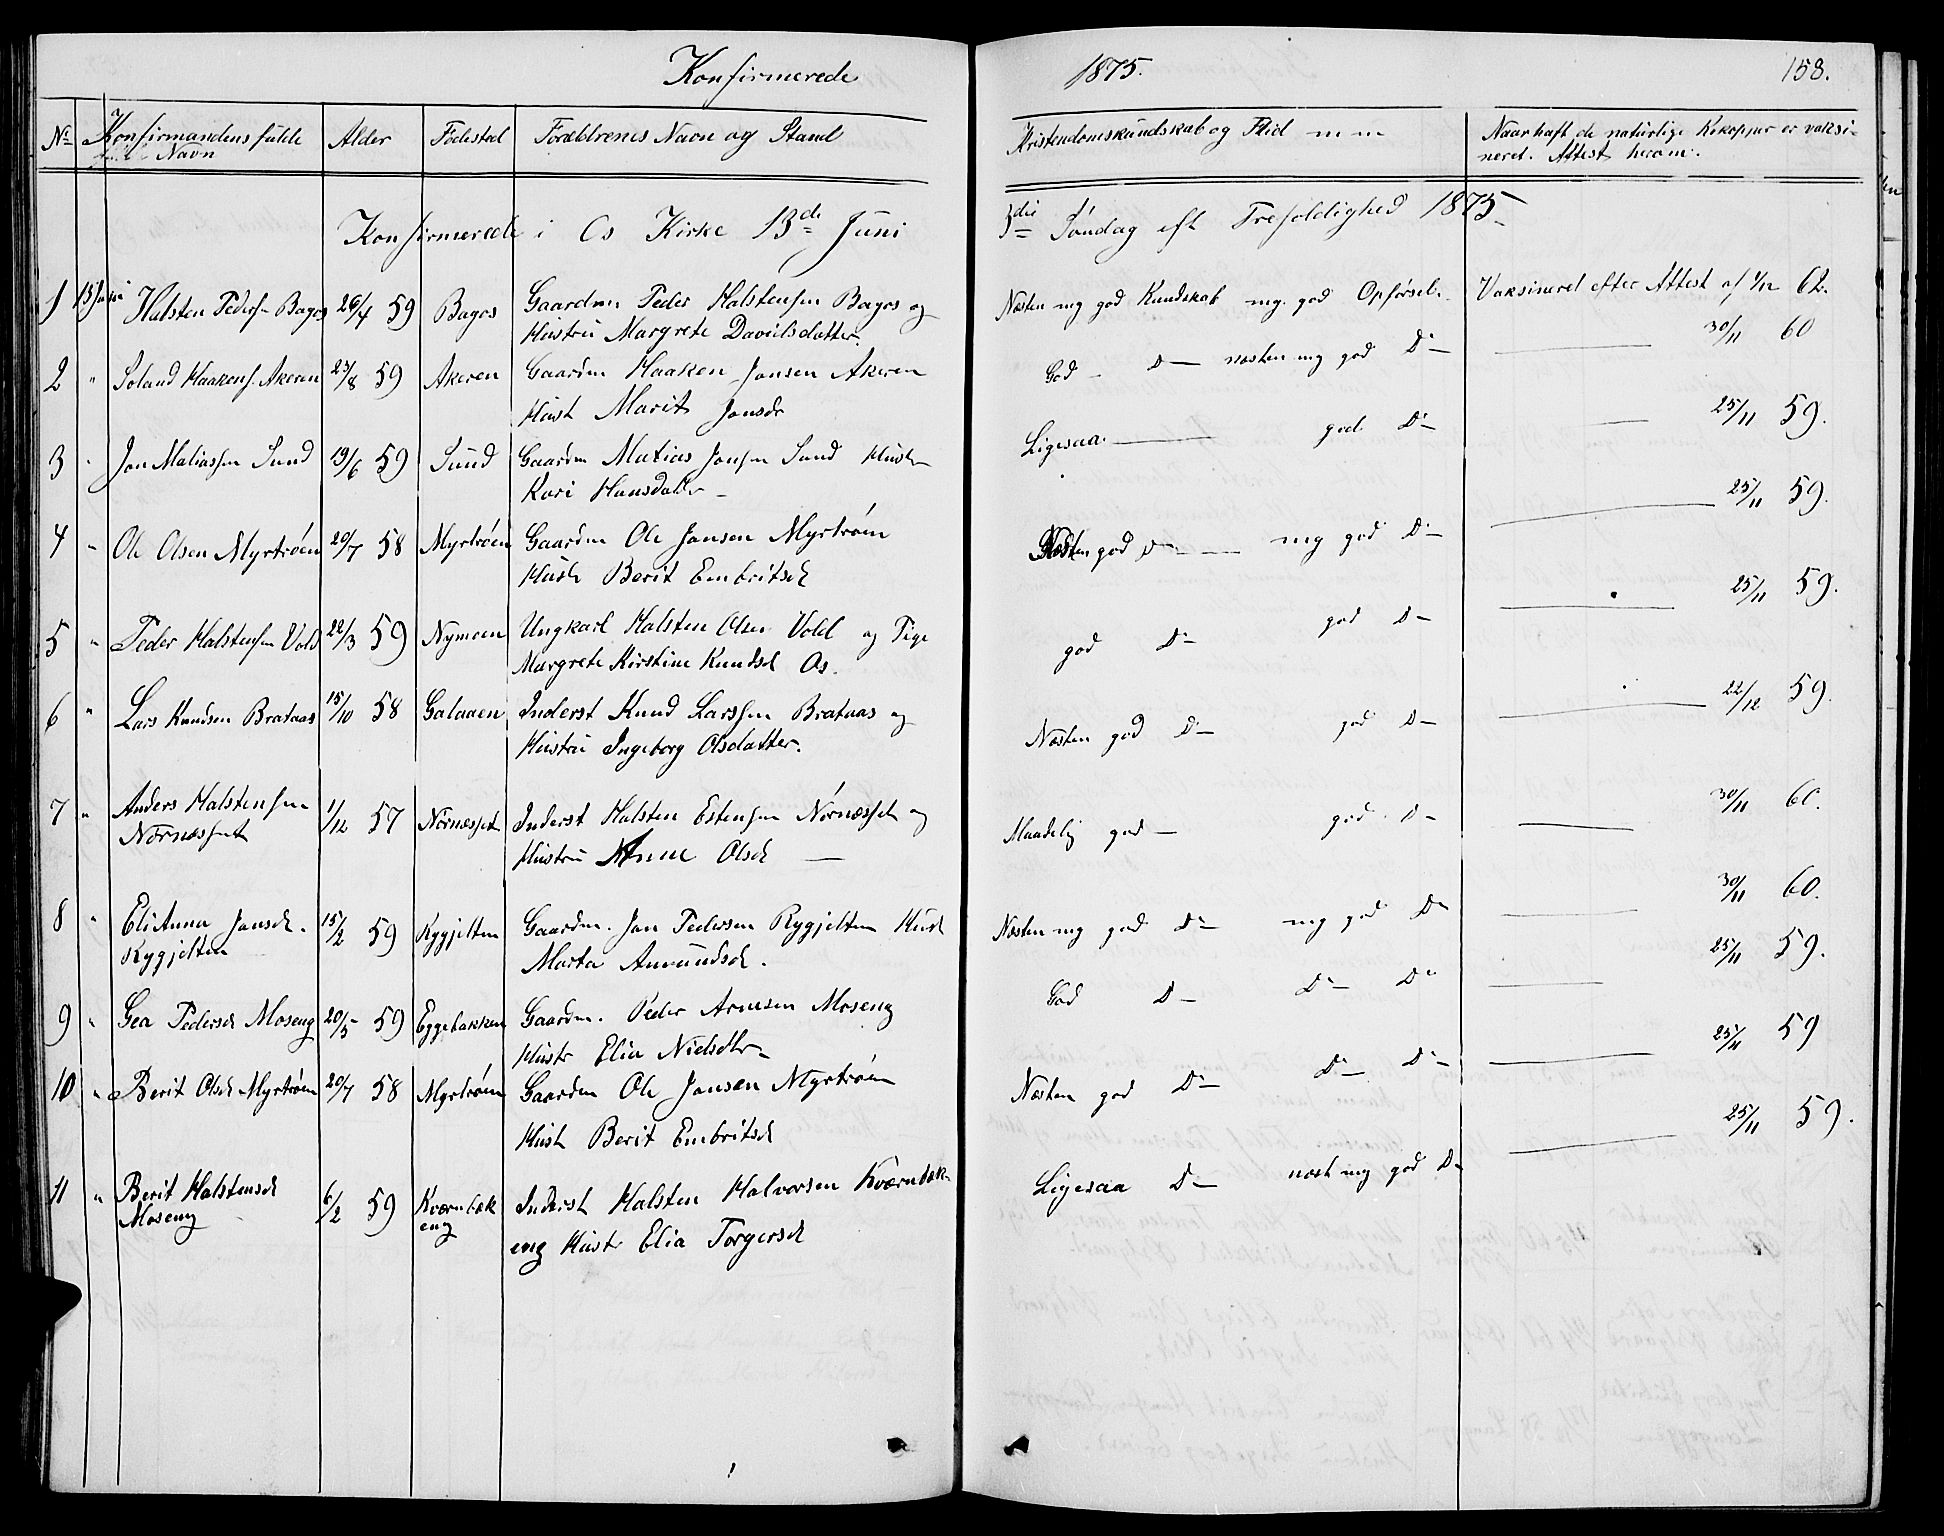 Konfirmerede
1875.
158.
No
Konfirmandens fulde
Navn
Alder
Födested
Forældrenes Navn og Stand
Kristendomskundskab og Flid m m
Naar haft de naturlige Kokopper er vaksi-
neret. Attest herom.
Konfirmerede i Os Kirke 13de Juni
3die Söndag eft Trefoldighed 1875
1 13 Juni Halsten Peders- Bagos 26/4 59 Bagos Gaardm Peder Halstensen Bagos og
Hustru Margrete Davidsdatter.
Næsten mg god Kundskab mg. god Opförsel.
Vaksineret efter Attest af 1/12 62.
2 " Haakens. Akeren 23/8 59 Akeren Gaardm Haaken Jonsen Akeren
Hust Marit Jonsdr
God D- næsten mg god D-
30/11 60
3 " Jon Matiassen Sund 19/6 59 Sund Gaardm Matias Jonsen Sund Hustr
Kari Hansdattr
Ligesaa god D-
25/11 59.
4 " Ole Olsen Myrtröen 20/7 58 Myrtröen Gaardm Ole Jonsen Myrtröen
Hust Berit Embritsd
Næsten god D- mg god D-
25/11 59.
5 " Peder Halstensen Vold 22/3 59 Nymoen Ungkarl Halsten Olsen Vold og Pige
Margrete Kirstine Knudsd Os.
god D- god D-
25/11 59.
6 " Lars Knudsen Brataas 15/10 58 Galaaen Inderst Knud Larssen Brataas og
Hustru Ingeborg Olsdatter.
Næsten god D- god D-
22/12 59.
7 " Anders Halstensen
Nörnæsset 1/12 57 Nörnæsset Inderst Halsten Estensen Nörnæsset og
Hustru Anne Olsd
Maadelig god - god D-
30/11 60.
8 " Eli Anna Jonsd.
Rygjelten 15/2 59 Rygjelten Gaardm. Jon Pedersen Rygjelten Hust
Marta Amundsd.
Næsten mg god D- mg god D-
30/11 60.
9 " Gea Pedersd Moseng 20/5 59 Eggebakken Gaardm. Peder Arnesen Moseng
Hustr Elia Nielsdtr
God D- D- D-
25/11 59.
10 " Berit Olsd Myrtröen 20/7 58 Myrtröen Gaardm Ole Jonsen Myrtröen
Hust Berit Embritsd
Næsten god D- D- D-
25/11 59
11 " Berit Halstensd
Moseng 6/2 59 Kværnbæk
eng Inderst Halsten Halvorsen Kværnbæk-
eng Hustr Elia Torgersd
Ligesaa D- næst mg god D-
25/11 59.